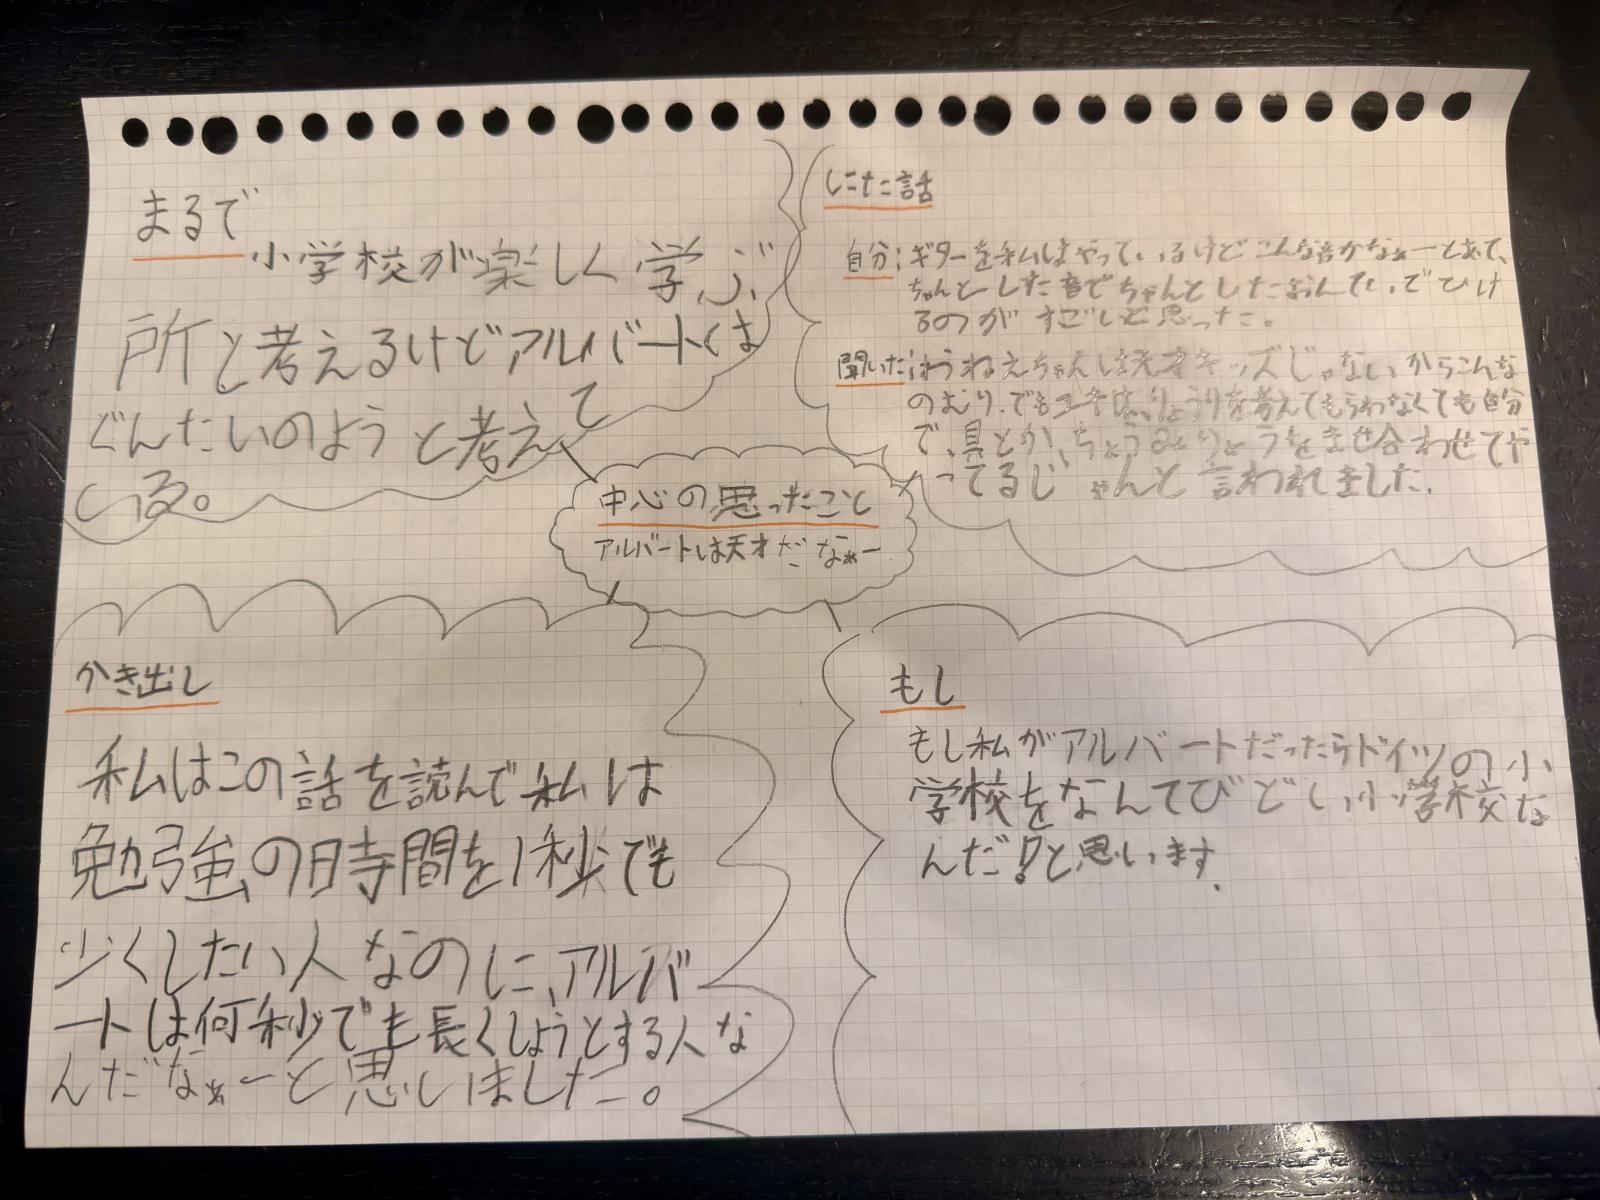 まるで
小学校が楽しく学ぶ
所と考えるけどアルバートくは
ぐんたいのようと考えて
いる。
にた話
自分:ギターを私はやっているけどこんな音かなぁーとあて、
ちゃんとした音でちゃんとしたおんていでひけ
るのがすごいと思った。
聞いた:ほうねえちゃんは天才キッズじゃないからこんな
のむり.でもユキは、りょうりを考えてもらわなくても自分
で、具とか、ちょうみりょうをませ合わせてや
ってるじゃんと言われました.
中心の思ったこと
アルバートは天才だなぁー
かき出し
私はこの話を読んで私は
勉強の時間を1秒でも
少くしたい人なのに、アルバ
ートは何秒でも長くしようとする人な
んだなぁーと思いました。
もし
もし私がアルバートだったらドイツの小
学校をなんてひどい小学校な
んだ!と思います.